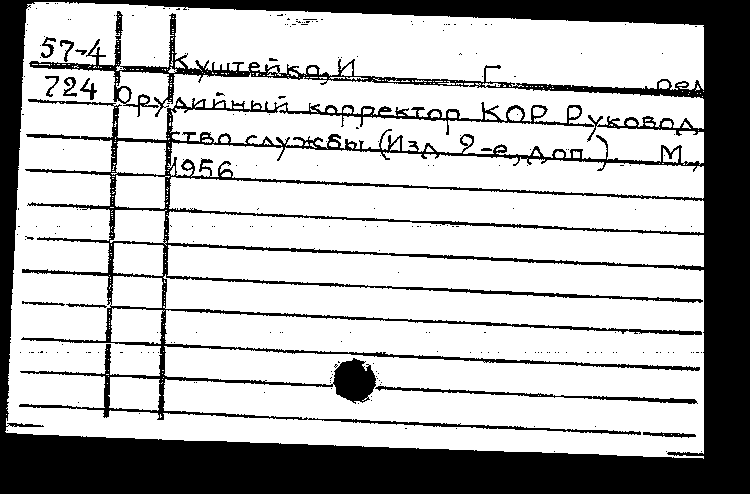 57-4 Куштейко, И Г ред
724 Орудийный корректор КОР Руковод
ство службы (Изд. 2-е, доп.). М.,
1956